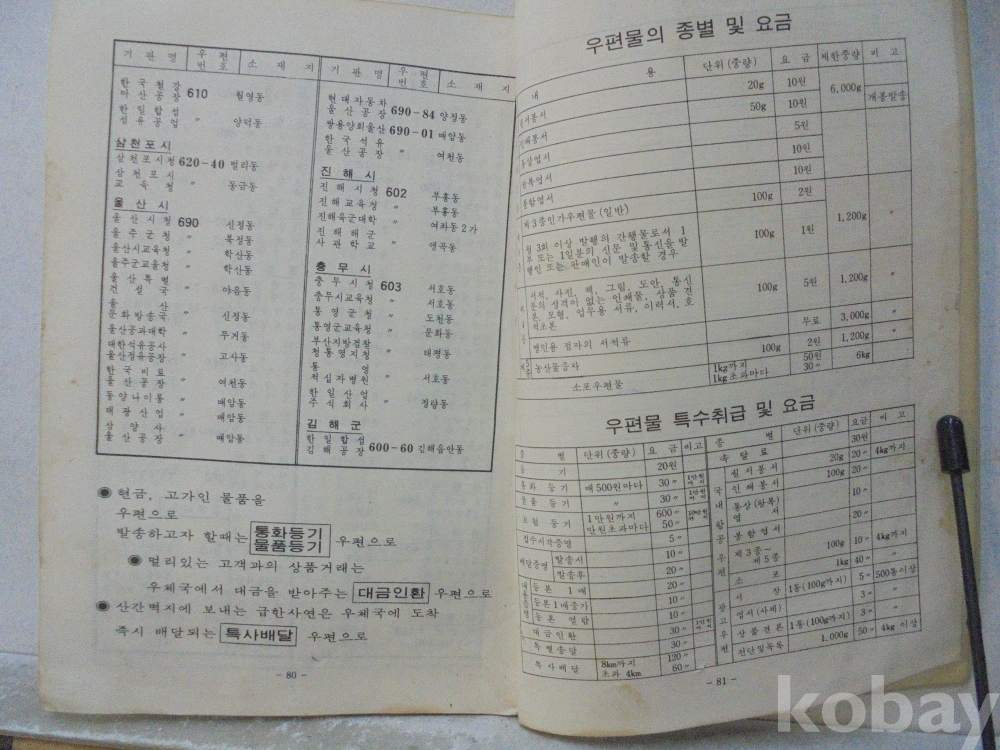 기관명 우편번호 소재지 기관명 우편번호 소재지
한국철강
마산공장 610 월영동
한일합섬
섬유공업 〃 양덕동
삼천포시
삼천포시청 620-40 벌리동
삼천포시
교육청 〃 동금동
울산시
울산시청 690 신정동
울주군청 〃 북정동
울산시교육청 〃 학산동
울주군교육청 〃 학산동
울산특별
건설국 〃 야음동
울산
문화방송국 〃 신정동
울산공과대학 〃 무거동
대한석유공사
울산정유공장 〃 고사동
한국비료
울산공장 〃 여천동
동양나이롱 〃 매암동
태광산업 〃 매암동
삼양사
울산공장 〃 매암동
현대자동차
울산공장 690-84 양정동
쌍용양회울산 690-01 매암동
한국석유
울산공장 〃 여천동
진해시
진해시청 602 부흥동
진해교육청 〃 부흥동
진해육군대학 〃 여좌동2가
진해해군
사관학교 〃 앵곡동
충무시
충무시청 603 서호동
충무시교육청 〃 서호동
통영군청 〃 도천동
통영군교육청 〃 문화동
부산지방검찰
청통영지청 〃 태평동
통영
적십자병원 〃 서호동
한일산업
주식회사 〃 정량동
김해군
한일합섬
김해공장 600-60 김해읍안동
◉ 현금, 고가인 물품을
우편으로
발송하고자 할때는 통화등기 물품등기 우편으로
◉ 멀리있는 고객과의 상품거래는
우체국에서 대금을 받아주는 대금인환 우편으로
◉ 산간벽지에 보내는 급한사연은 우체국에 도착
즉시 배달되는 특사배달 우편으로
- 80 -
우편물의 종별 및 요금
내용 단위(중량) 요금 제한중량 비고
20g 10원 6,000g
50g 10원 개봉발송
5원
10원
10원
제3종인가우편물(일반) 100g 2원 1,200g 〃
월 3회 이상 발행의 간행물로서 1
부 또는 1일분의 신문 및 통신을 발
행인 또는 판매인이 발송할 경우 100g 1원
서적, 사진, 책, 그림, 도안, 통신
문의 성격이 없는 인쇄물, 상품 견
본, 모형, 업무용 서류, 이력서, 호
적초본 100g 5원 1,200g 〃
맹인용 점자의 서적류 무료 3,000g 〃
농산물종자 100g 2원 1,200g 〃
소포우편물 1kg까지 50원 6kg
1kg초과마다 30〃
우편물 특수취급 및 요금
종별 단위(중량) 요금 비고 종별 단위(중량) 요금 비고
등기 20원
통화등기 매500원마다 30〃
물품등기 〃 30〃
보험등기 1만원까지 600〃
만원초과마다 50〃
접수시각증명 5〃
배달증명 발송시 10〃
발송후 20〃
등본 1매 20〃
등본1매증가 10〃
등본 열람 10〃
대금인환 30〃
특별송달 30〃
특사배달 8km까지 120〃
초과 4km 60〃
속달료 30원
국내항공우편
필서봉서 20g 20〃 4kg까지
인쇄봉서 100g 20〃
통상(왕복)엽서 10〃
봉함엽서 20〃
제3종~제5종 100g 10〃 4kg까지
소포 1kg 40〃 〃
광고우편
서장 1통(100g까지) 5〃 500통이상
엽서(사제) 3〃 〃
상품견본 1통(100g까지) 3〃 〃
전단및목록 1,000g 50〃 4kg 이상
- 81 -
kobay